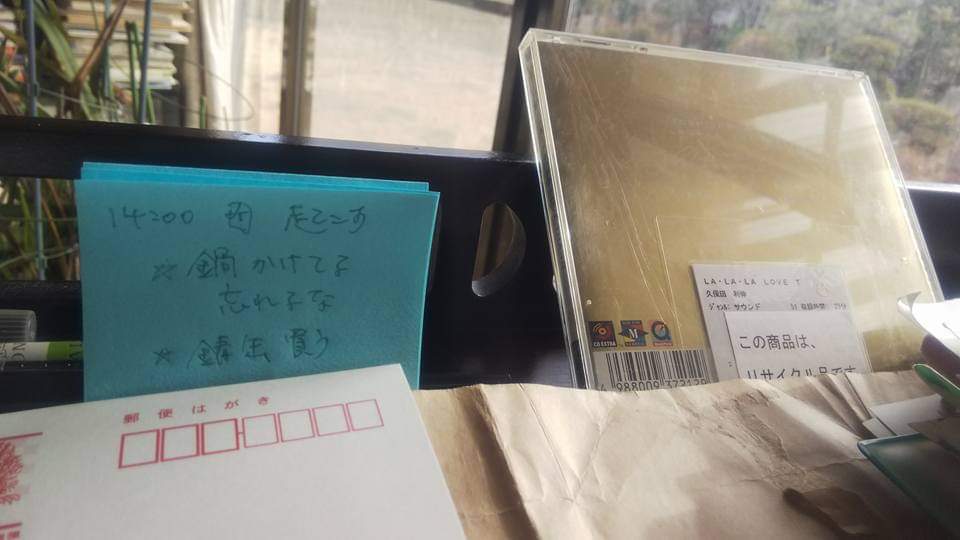 14:00 起こす
☆ 鍋かけてる
忘れるな
☆ 缶 買う
郵便はがき
LA・LA・LA LOVE T
久保田 利伸
ジャンル: サウンド
この商品は、
リサイクル品です
CD EXTRA
4 988009